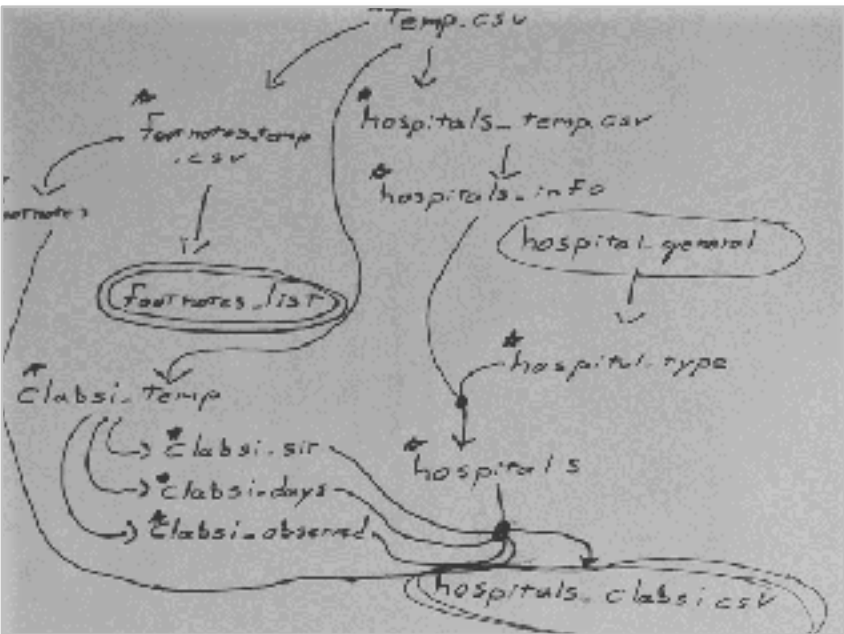 Temp.csv
* hospitals_temp.csv
* footnotes_temp
.csv
* hospitals_info
ootnotes
hospital_general
footnotes_list
* hospital_type
* Clabsi_Temp
* Clabsi_sir
* hospitals
* Clabsi_days
* Clabsi_observed
hospitals_clabsi.csv